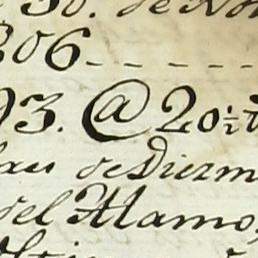 30. de No
306 - - - - -
93. @ 20½
de Diezm
del Alamo,